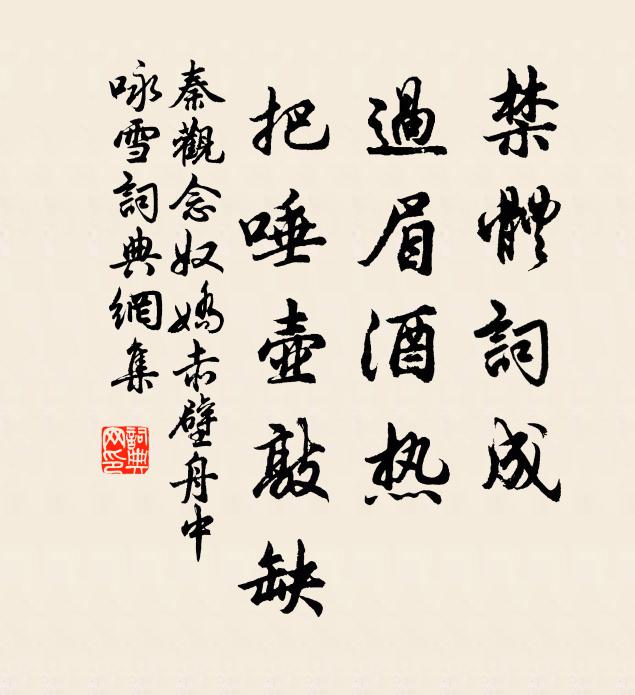 禁體詞成
過眉酒热
把唾壺敲缺
秦觀念奴嬌赤壁舟中
咏雪詞典網集
詞典网印